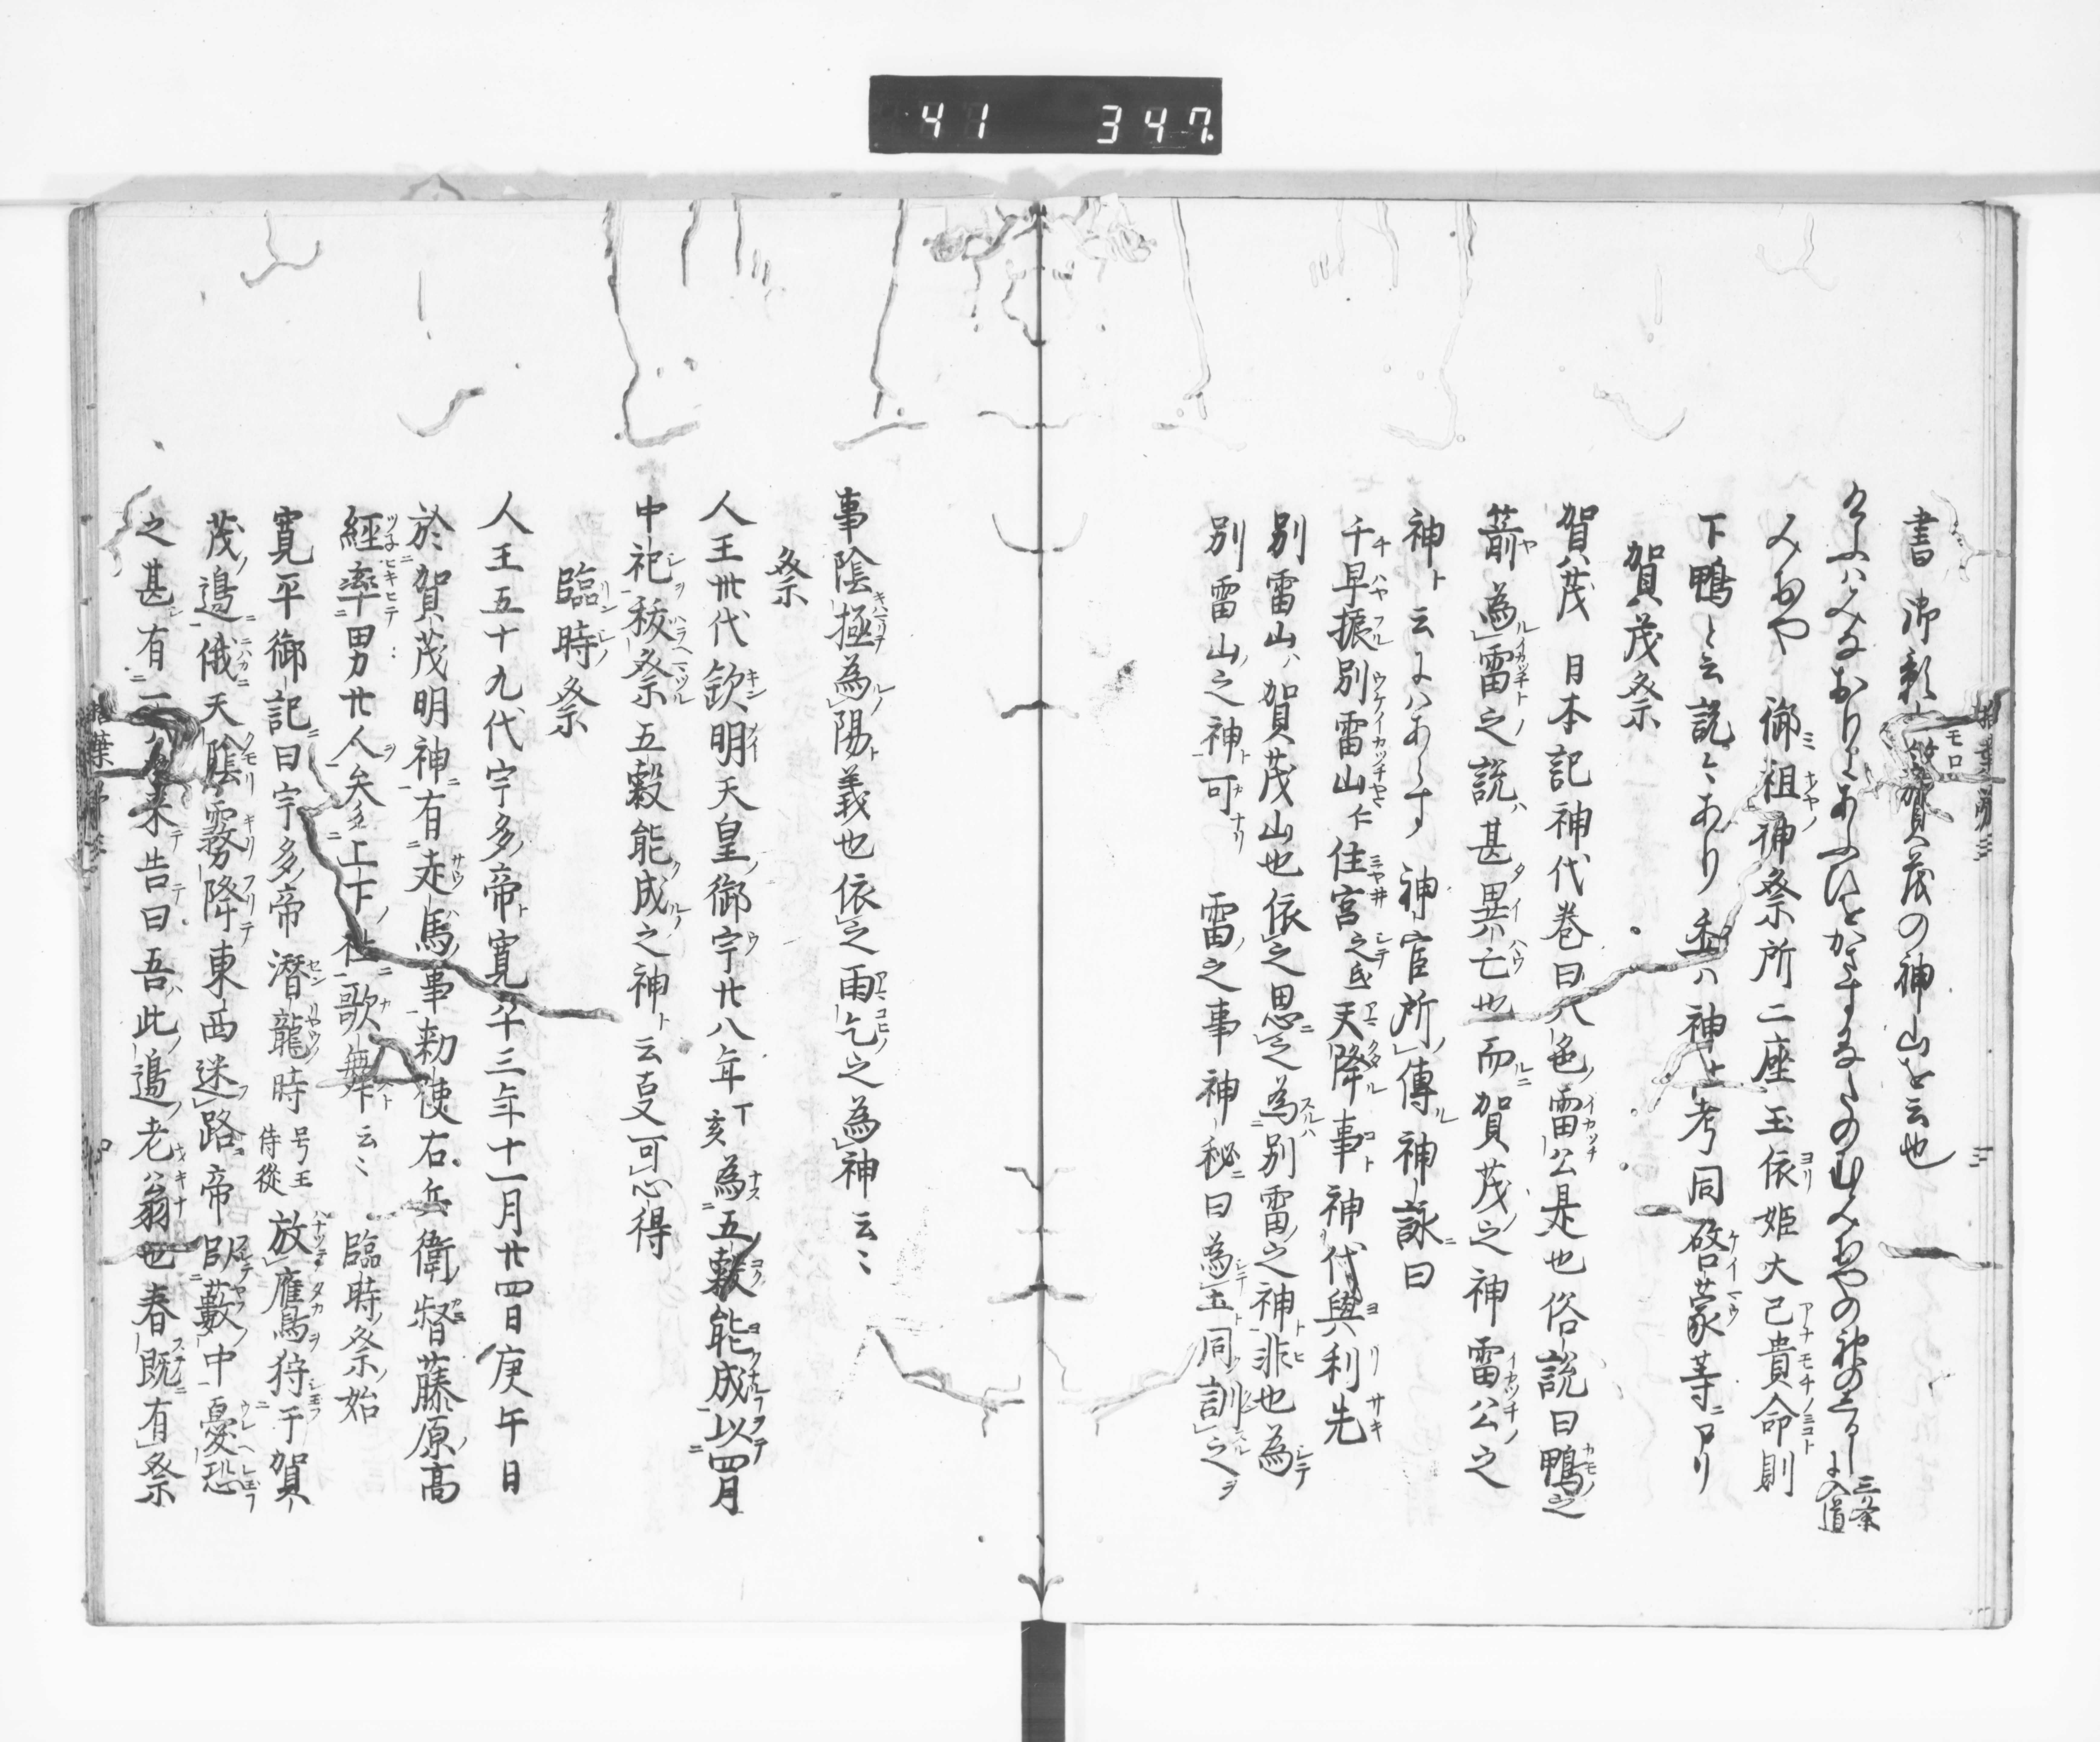 41 347
書 御影山 賀茂の神山を云也
みおや 御祖神祭所二座玉依姫大己貴命則
下鴨と云説々あり 委ハ神書考同啓蒙等ニアリ
賀茂祭
賀茂 日本記神代巻曰八色雷公是也俗説曰鴨之
箭為雷之説甚異亡也而賀茂之神雷公之
神ト云ニハあらす 神官所傳神詠曰
千早振別雷山仁住宮之氐天降事神代與利先
別雷山ハ賀茂山也依之思之為別雷之神非也為
別雷山之神可ナリ 雷之事神秘曰為玉同訓之
事陰極為陽義也依之雨乞之為神云々
祭
人王卅代欽明天皇御宇廿八年丁亥為五穀能成以四月
中祀秡祭五穀能成之神ト云叓可心得
臨時祭
人王五十九代宇多帝寛平三年十一月廿四日庚午日
於賀茂明神有走馬事勅使右兵衛督藤原高
經率男廿人矣多上下社歌舞下云々 臨時祭始
寛平御記曰宇多帝潜龍時号王侍從放鷹鳥狩于賀
茂邉俄天陰霧降東西迷路帝臥藪中憂恐
之甚有一人老来告曰吾此邉老翁也春既有祭